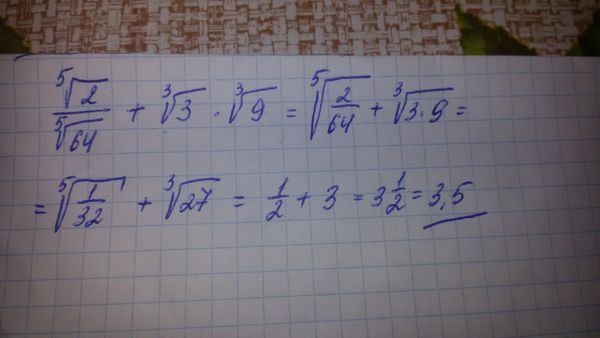 ⁵√2/⁵√64 + ³√3 · ³√9 = ⁵√(2/64) + ³√(3·9) =
= ⁵√(1/32) + ³√27 = 1/2 + 3 = 3 1/2 = 3,5